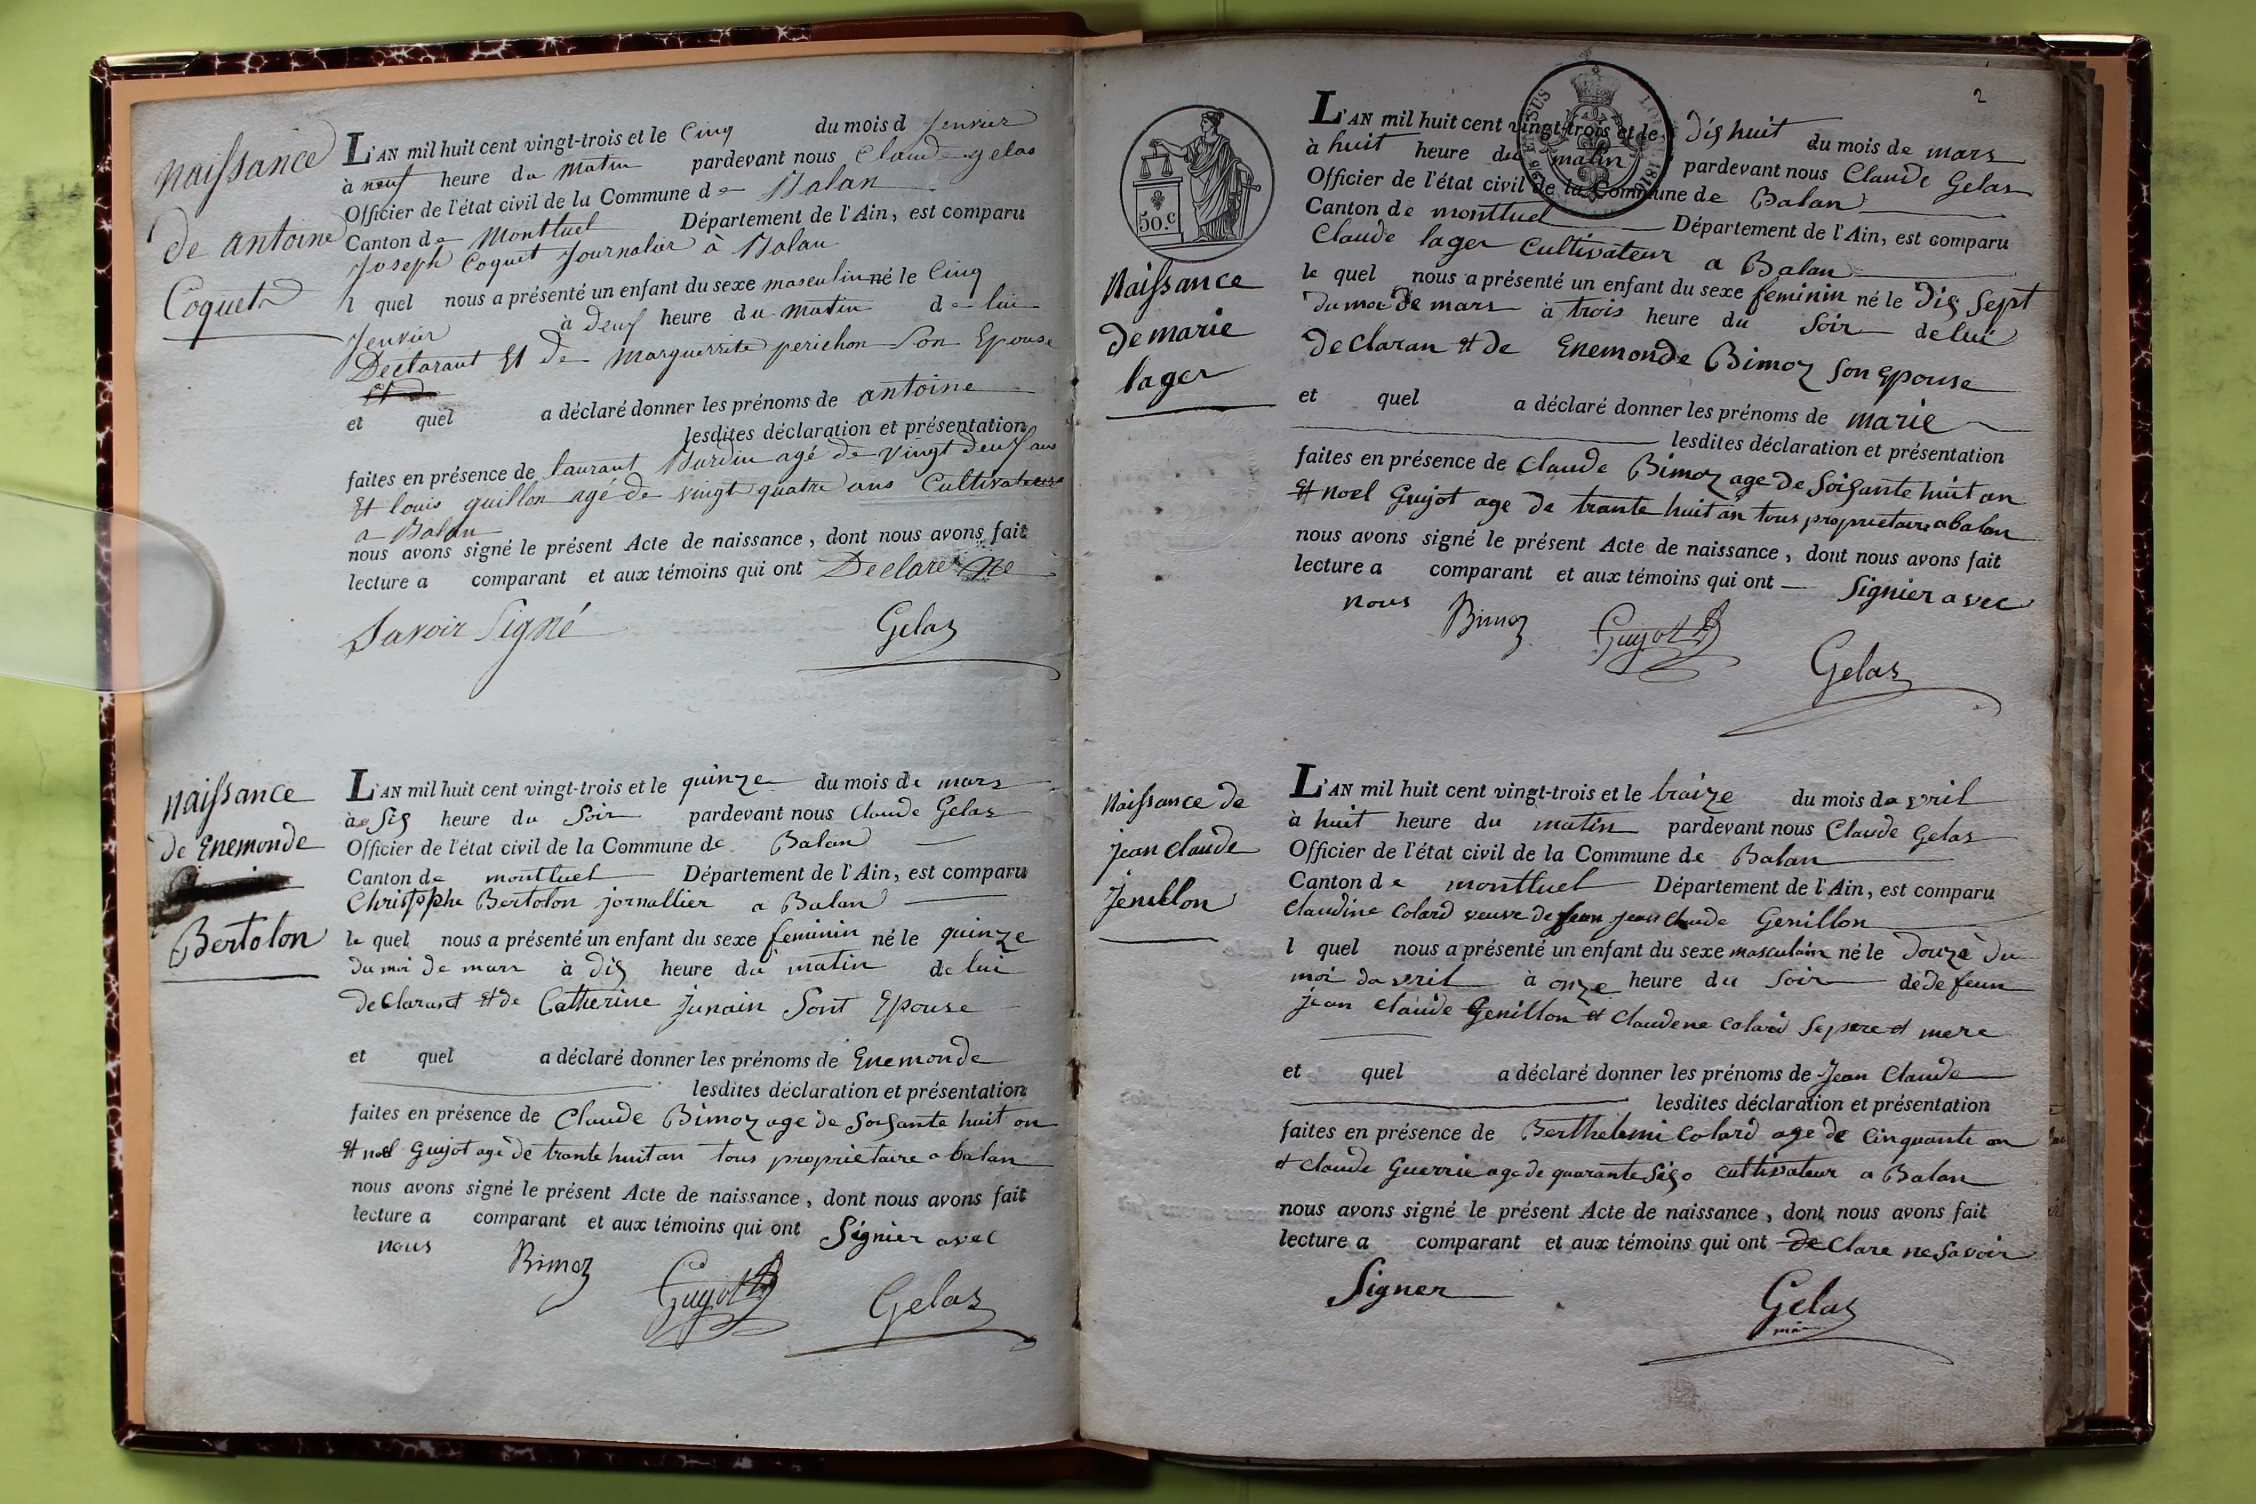 Naissance
de antoine
Coquet
L'AN mil huit cent vingt-trois et le Cinq du mois d Jenvier
à neuf heure du matin pardevant nous Claude gelas
Officier de l'état civil de la Commune de Balan
Canton de Montluel Département de l'Ain, est comparu
Joseph Coquet Journalier à Balan
l quel nous a présenté un enfant du sexe masculin né le Cinq
Jenvier à deuf heure du matin de lui
Declarant Et de Marguerrite perichon Son Epouse
Et de
et quel a déclaré donner les prénoms de antoine
lesdites déclaration et présentation
faites en présence de laurant Burdin agé de vingt deuf ans
Et louis guillon agé de vingt quatre ans Cultivateurs
a Balan
nous avons signé le présent Acte de naissance, dont nous avons fait
lecture a comparant et aux témoins qui ont Declare Ne
Savoir Signé Gelas
Naissance
de Enemonde
Bertolon
L'AN mil huit cent vingt-trois et le quinze du mois de mars
à Sis heure du Soir pardevant nous Claude Gelas
Officier de l'état civil de la Commune de Balan
Canton de montluel Département de l'Ain, est comparu
Christophe Bertolon jornallier a Balan
le quel nous a présenté un enfant du sexe feminin né le quinze
du moi de mars à dis heure du matin de lui
declarant et de Catherine junain Sont Epouse
et quel a déclaré donner les prénoms de Enemonde
lesdites déclaration et présentation
faites en présence de Claude Bimoz age de Soisante huit an
et noel Guyot age de trante huit an tous proprietaire a balan
nous avons signé le présent Acte de naissance, dont nous avons fait
lecture a comparant et aux témoins qui ont Signier avec
nous Bimoz Guyot Gelas
2
50.c
LOI DE 1816
Naissance
de marie
lager
L'AN mil huit cent vingt-trois et le dis huit du mois de mars
à huit heure du matin pardevant nous Claude Gelas
Officier de l'état civil de la Commune de Balan
Canton de montluel Département de l'Ain, est comparu
Claude lager Cultivateur a Balan
le quel nous a présenté un enfant du sexe feminin né le dis Sept
du moi de mars à trois heure du Soir de lui
declaran et de Enemonde Bimoz Son Epouse
et quel a déclaré donner les prénoms de marie
lesdites déclaration et présentation
faites en présence de Claude Bimoz age de Soisante huit an
et noel Guyot age de trante huit an tous proprietaire a balan
nous avons signé le présent Acte de naissance, dont nous avons fait
lecture a comparant et aux témoins qui ont Signier avec
nous Bimoz Guyot Gelas
Naissance de
jean claude
Jenillon
L'AN mil huit cent vingt-trois et le traize du mois davril
à huit heure du matin pardevant nous Claude Gelas
Officier de l'état civil de la Commune de Balan
Canton de montluel Département de l'Ain, est comparu
Claudine Colard veuve de feun jean Claude Genillon
l quel nous a présenté un enfant du sexe masculain né le douze du
moi davril à onze heure du Soir dede feun
jean Claude Genillon et Claudene Colard Se pere et mere
et quel a déclaré donner les prénoms de Jean Claude
lesdites déclaration et présentation
faites en présence de Berthelemi Colard age de Cinquante an
et Claude Guerrie age de quarante Sis cultivateur a Balan
nous avons signé le présent Acte de naissance, dont nous avons fait
lecture a comparant et aux témoins qui ont declare ne Savoir
Signer Gelas